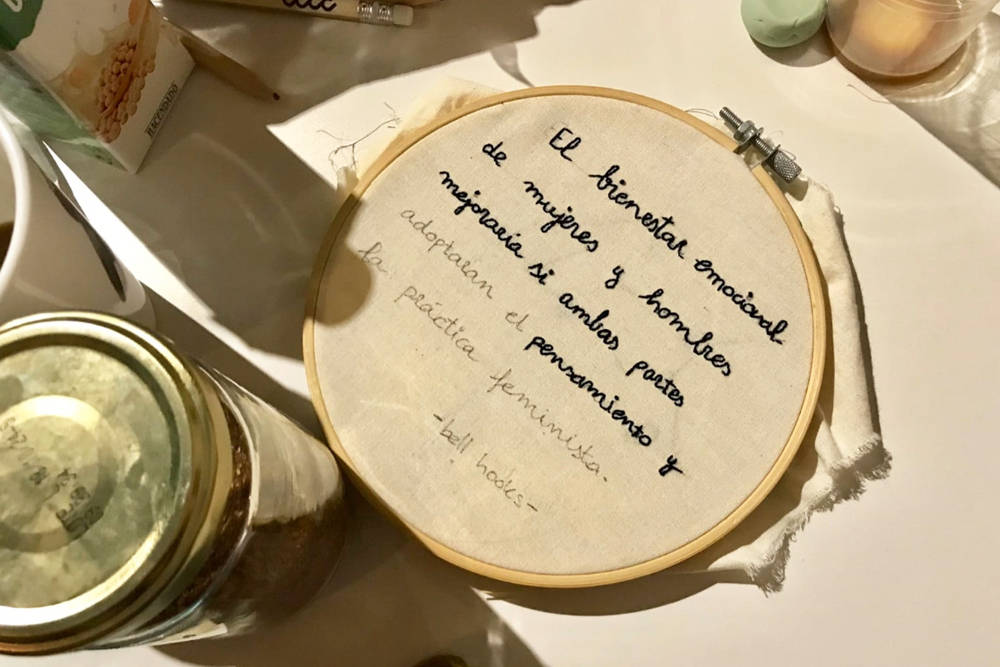 El bienestar emocional
de mujeres y hombres
mejoraría si ambas partes
adoptaran el pensamiento y
la práctica feminista.
-bell hooks-
HACENDADO